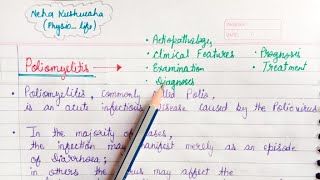 Neha Kushwaha
(Physio_life)
Poliomyelitis
• Aetiopathology
• Clinical Features
• Examination
• Diagnoses
• Prognosis
• Treatment
• Poliomyelitis, commonly called Polio,
is an acute infectious disease caused by the Poliovirus
• In the majority of cases,
the infection may manifest merely as an episode
of Diarrhoea;
in others the virus may affect the